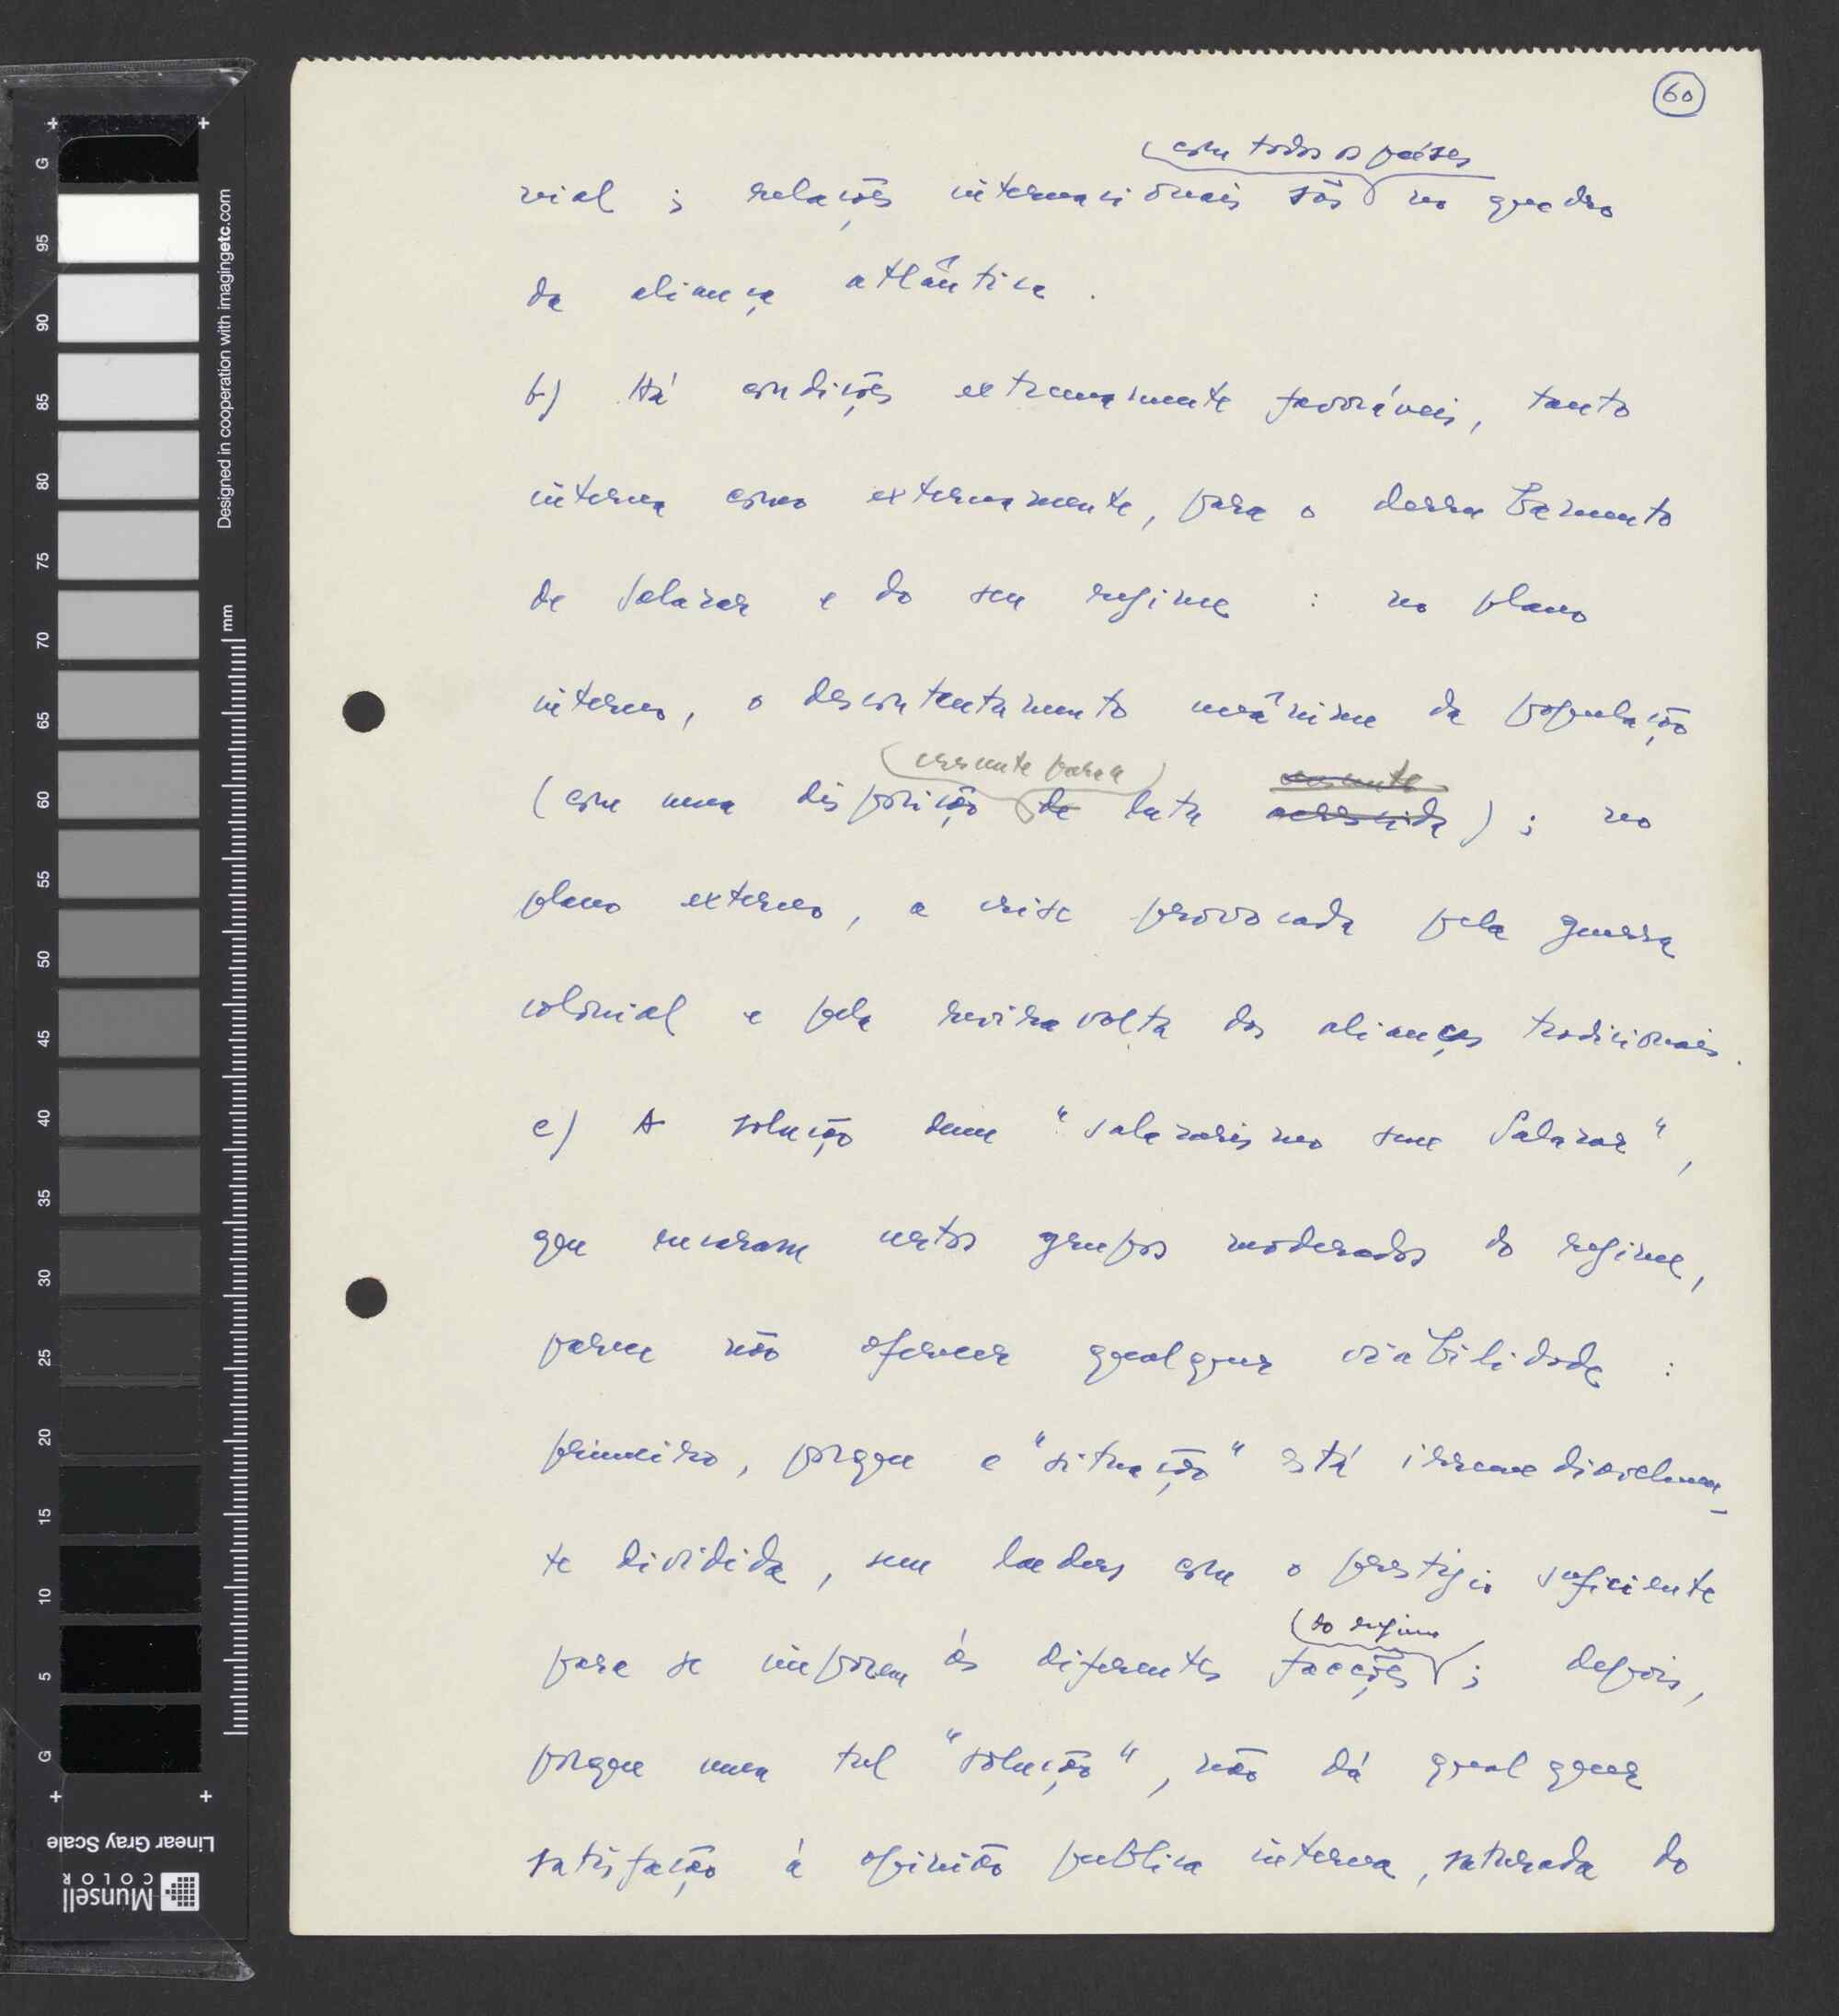 60
com todos os países
nial ; relações internacionais sãs no quadro
da aliança atlântica .
b) Há condições extremamente favoráveis, tanto
interna como externamente, para o derrubamento
de Salazar e do seu regime : no plano
interno, o descontentamento unânime da população
crescente para a
(com uma disposição de luta acrescida) ; no
plano externo, a crise provocada pela guerra
colonial e pela reviravolta das alianças tradicionais.
c) A solução dum "salazarismo sem Salazar",
que encaram certos grupos moderados do regime,
parece não oferecer qualquer viabilidade :
primeiro, porque a "situação" está irremediavelmen-
te dividida, sem leaders com o prestígio suficiente
do regime
para se imporem às diferentes facções ; depois,
porque uma tal "solução", não dá qualquer
satisfação à opinião publica interna, saturada do
G
95
90
85
80
75
70
65
60
55
50
45
40
35
30
25
20
15
10
5
G
Designed in cooperation with imagingetc.com
mm
Linear Gray Scale
Munsell
COLOR